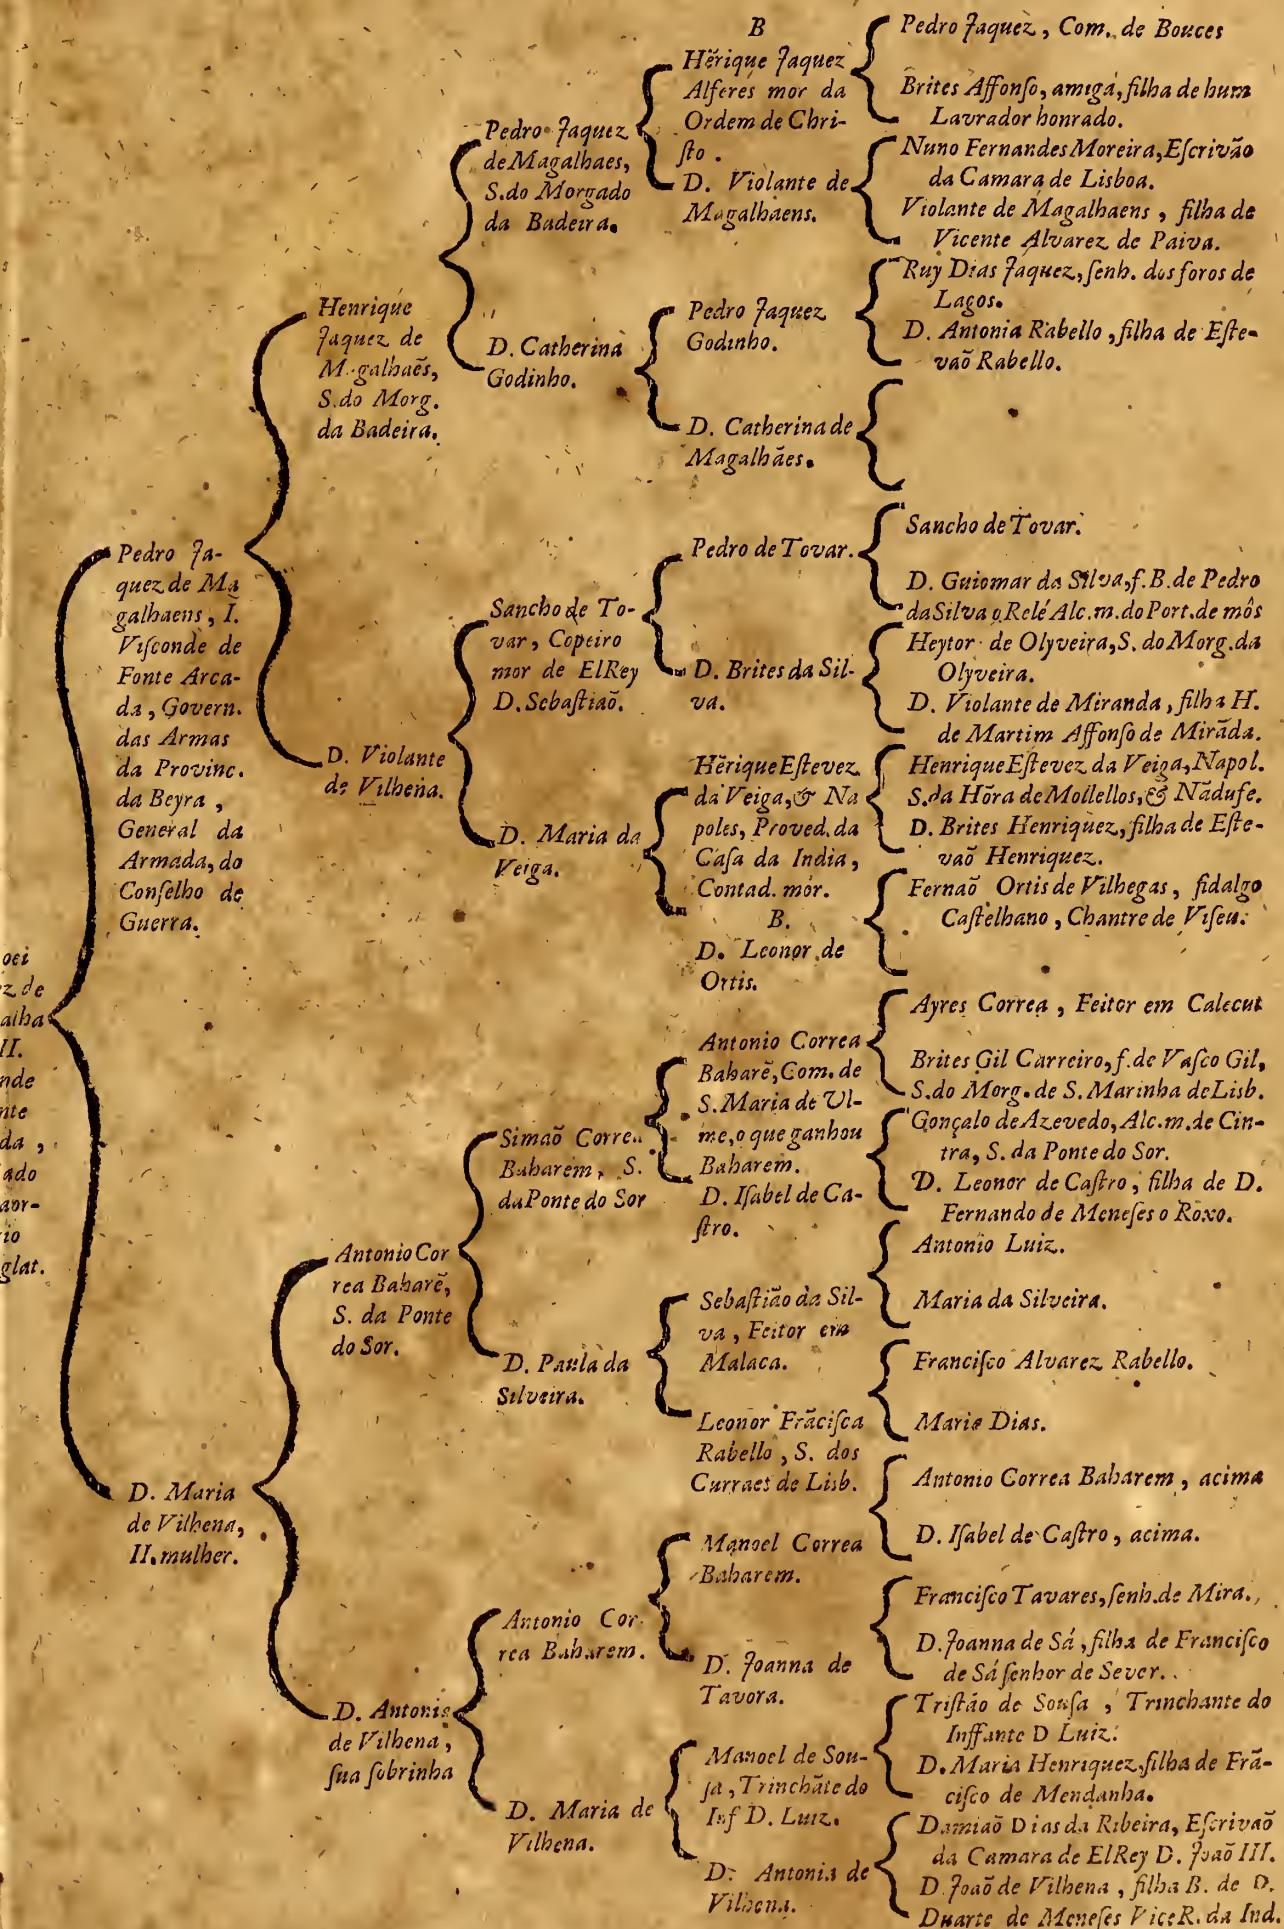 oei
z de
alha
II.
nde
nte
da ,
ado
aor-
io
glat.
Pedro Ja-
quez de Ma
galhaens, I.
Viſconde de
Fonte Arca-
da, Govern.
das Armas
da Provinc.
da Beyra ,
General da
Armada, do
Conſelho de
Guerra.
D. Maria
de Vilhena,
II. mulher.
Henrique
Jaquez de
M galhaẽs,
S. do Morg.
da Badeira.
D. Violante
de Vilhena.
Antonio Cor
rea Baharẽ,
S. da Ponte
do Sor.
D. Antonia
de Vilhena,
ſua ſobrinha
Pedro Jaquez
de Magalhaes,
S. do Morgado
da Badeira.
D. Catherina
Godinho.
Sancho de To-
var, Copeiro
mor de ElRey
D. Sebaſtiaõ.
D. Maria da
Veiga.
Simaõ Correa
Baharem, S.
da Ponte do Sor
D. Paula da
Silveira.
Antonio Cor
rea Baharem.
D. Maria de
Vilhena.
B
Hẽrique Jaquez
Alferes mor da
Ordem de Chri-
ſto .
D. Violante de
Magalhaens.
Pedro Jaquez
Godinho.
D. Catherina de
Magalhães.
Pedro de Tovar.
D. Brites da Sil-
va.
Hẽrique Eſtevez
da Veiga, & Na
poles, Proved. da
Caſa da India,
Contad. mór.
B.
D. Leonor de
Ortis.
Antonio Correa
Baharẽ, Com. de
S. Maria de Ul-
me, o que ganhou
Baharem.
D. Iſabel de Ca-
ſtro.
Sebaſtião da Sil-
va , Feitor em
Malaca.
Leonor Frãciſca
Rabello , S. dos
Curraes de Lisb.
Manoel Correa
Baharem.
D. Joanna de
Tavora.
Manoel de Sou-
ſa, Trinchãte do
Inf D. Luiz.
D. Antonia de
Vilhena.
Pedro Jaquez , Com. de Bouces
Brites Affonſo, amiga, filha de hum
Lavrador honrado.
Nuno Fernandes Moreira, Eſcrivão
da Camara de Lisboa.
Violante de Magalhaens , filha de
Vicente Alvarez de Paiva.
Ruy Dias Jaquez, ſenh. dos foros de
Lagos.
D. Antonia Rabello , filha de Eſte-
vaõ Rabello.
Sancho de Tovar.
D. Guiomar da Silva, f. B. de Pedro
da Silva o Relé Alc. m. do Port. de mòs
Heytor de Olyveira, S. do Morg. da
Olyveira.
D. Violante de Miranda , filha H.
de Martim Affonſo de Mirãda.
Henrique Eſtevez da Veiga, Napol.
S. da Hõra de Mollellos, & Nãdufe.
D. Brites Henriquez, filha de Eſte-
vaõ Henriquez.
Fernaõ Ortis de Vilhegas , fidalgo
Caſtelhano , Chantre de Viſeu.
Ayres Correa , Feitor em Calecut
Brites Gil Carreiro, f. de Vaſco Gil,
S. do Morg. de S. Marinha de Lisb.
Gonçalo de Azevedo, Alc. m. de Cin-
tra, S. da Ponte do Sor.
D. Leonor de Caſtro , filha de D.
Fernando de Meneſes o Roxo.
Antonio Luiz.
Maria da Silveira.
Franciſco Alvarez Rabello.
Maria Dias.
Antonio Correa Baharem , acima
D. Iſabel de Caſtro , acima.
Franciſco Tavares, ſenh. de Mira.
D. Joanna de Sá , filha de Franciſco
de Sá ſenhor de Sever.
Triſtão de Souſa , Trinchante do
Inffante D Luiz.
D. Maria Henriquez, filha de Frã-
ciſco de Mendanha.
Damiaõ Dias da Ribeira, Eſcrivaõ
da Camara de ElRey D. Joaõ III.
D. Joaõ de Vilhena , filha B. de D.
Duarte de Meneſes ViceR. da Ind.